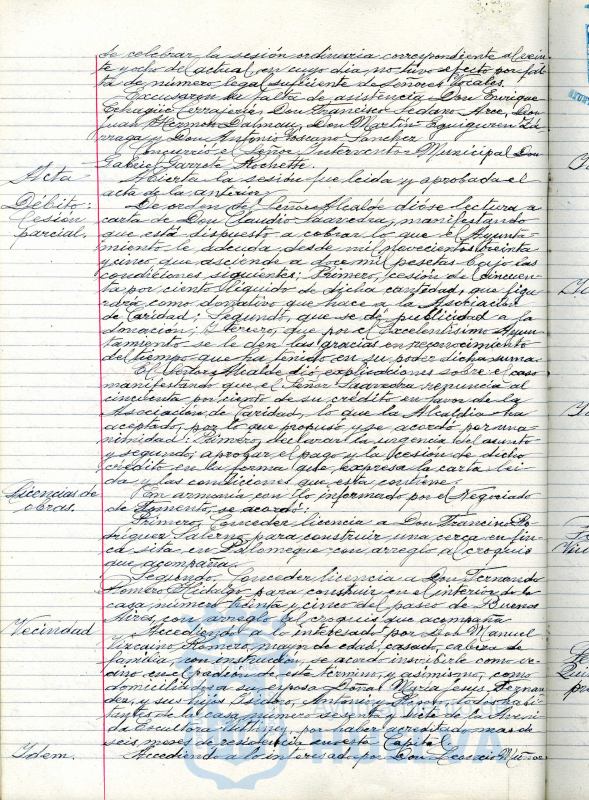 de celebrar la sesión ordinaria correspondiente al vein-
te y ocho del actual, en cuyo día no tuvo efecto por fal-
ta de número legal suficiente de Señores Vocales.
Excusaron su falta de asistencia Don Enrique
Don Francisco Sedano Arce, Don
Juan Don Martín Equiguren
rraga y Don Antonio Sánchez
Concurrió el Señor Interventor Municipal Don
Gabriel Garrote
Acta
Abierta la sesión fue leida y aprobada el
acta de la anterior.
Débito:
Cesión
parcial.
De orden del Señor Alcalde dióse lectura a
carta de Don Claudio Saavedra, manifestando
que está dispuesto a cobrar lo que el Ayunta-
miento le adeuda desde mil novecientos treinta
y cinco que asciende a doce mil pesetas bajo las
condiciones siguientes: Primero, cesión de cincuen-
ta por ciento líquido de dicha cantidad, que figu-
rará como donativo que hace a la Asociación
de Caridad; Segundo, que se dé publicidad a la
donación; y Tercero, que por el Excelentísimo Ayun-
tamiento se le den las gracias en reconocimiento
del tiempo que ha tenido en su poder dicha suma.
El Señor Alcalde dió explicaciones sobre el caso
manifestando que el Señor Saavedra renuncia al
cincuenta por ciento de su crédito en favor de la
Asociación de Caridad, lo que la Alcaldía ha
aceptado, por lo que propuso y se acordó por una-
nimidad: Primero, declarar la urgencia del asunto
y segundo, aprobar el pago y la cesión de dicho
crédito en la forma que expresa la carta lei-
da y las condiciones que esta contiene.
Licencias de
obras.
En armonía con lo informado por el Negociado
de Fomento, se acordó:
Primero, Conceder licencia a Don Francisco Ro-
dríguez Salerno, para construir una cerca en fin-
ca sita en Palomeque con arreglo al croquis
que acompaña.
Segundo, Conceder licencia a Don Fernando
Romero Hidalgo para construir en el interior de la
casa número treinta y cinco del paseo de Buenos
Aires, con arreglo al croquis que acompaña
Vecindad
Accediendo a lo interesado por Don Manuel
Vizcaino Romero, mayor de edad, casado, cabeza de
familia, con instrucción, se acordó inscribirle como ve-
cino en el padrón de este término, y asimismo, como
domiciliados a su esposa Doña María Jesús Fernan-
dez, y sus hijos Isidoro, habi-
tantes de la casa número sesenta y siete de la Aveni-
da Escultora Whitney, por haber acreditado mas de
seis meses de residencia en esta Capital.
Idem.
Accediendo a lo interesado por Don Leocadio Muñoz